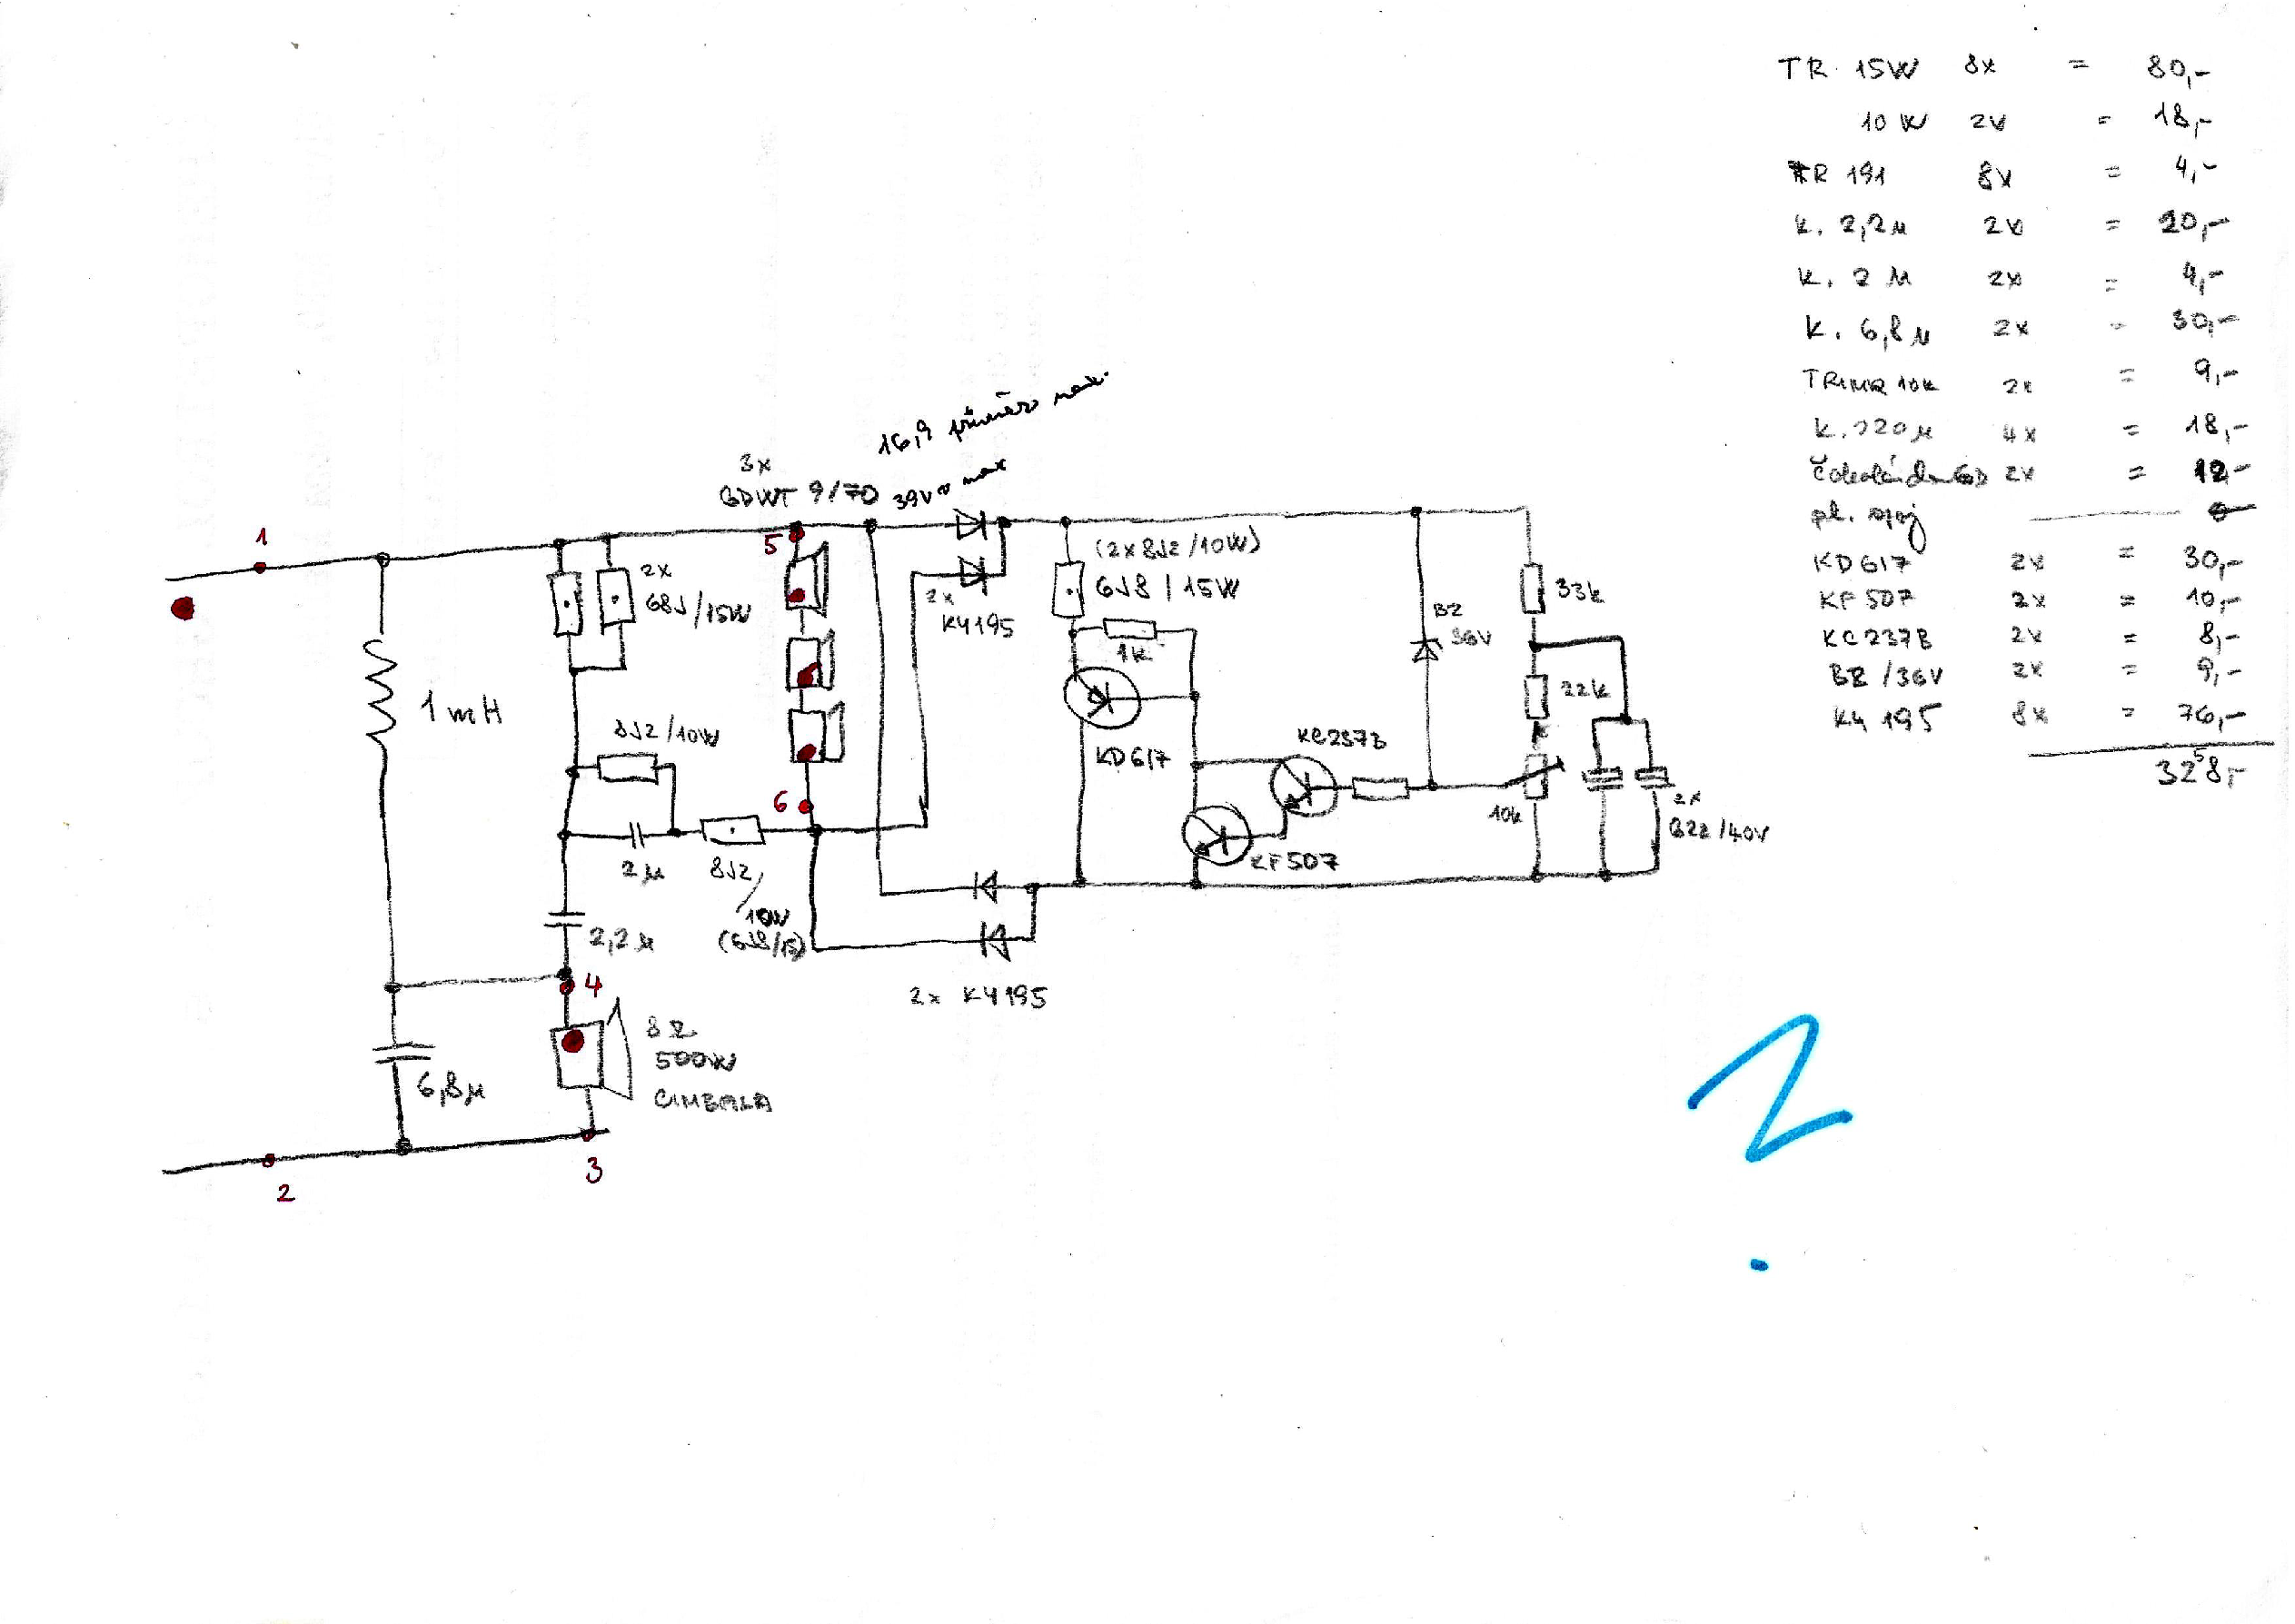 TR 15W 8x = 80,-
10W 2x = 18,-
TR 191 8x = 4,-
K. 2,2µ 2x = 20,-
K. 2µ 2x = 4,-
K. 6,8µ 2x = 30,-
TRIMR 10k 2x = 9,-
K. 220µ 4x = 18,-
2x = 12,-
pl. spoj
KD617 2x = 30,-
KF507 2x = 10,-
KC237B 2x = 8,-
BZ/36V 2x = 9,-
KY195 8x = 76,-
328,-
16,9 max.
3x
GDWT 9/70
39V max
1
5
2x
68J/15W
1mH
8J2/10W
2µ
6
8J2/
10W
(6J8/15)
2,2µ
4
8Ω
500W
CIMBALA
6,8µ
2
3
2x
KY195
(2x8J2/10W)
6J8/15W
1k
KD617
KC237B
KF507
BZ
36V
33k
22k
10k
2x
G22/40V
2x KY195
?